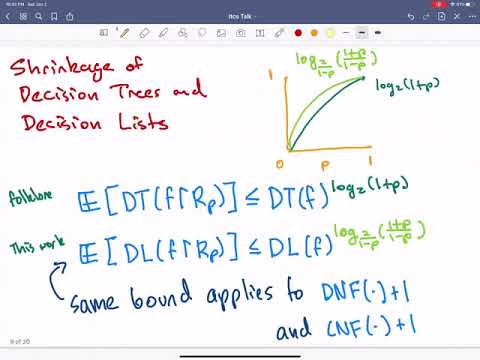 10:51 PM Sat Jan 2
Itcs Talk
Shrinkage of
Decision Trees and
Decision Lists
log_{2/(1-p)}((1+p)/(1-p))
1
log₂(1+p)
0 p 1
folklore 𝔼[DT(f↾R_p)] ≤ DT(f)^{log₂(1+p)}
This work 𝔼[DL(f↾R_p)] ≤ DL(f)^{log_{2/(1-p)}((1+p)/(1-p))}
same bound applies to DNF(·)+1
and CNF(·)+1
9 of 20